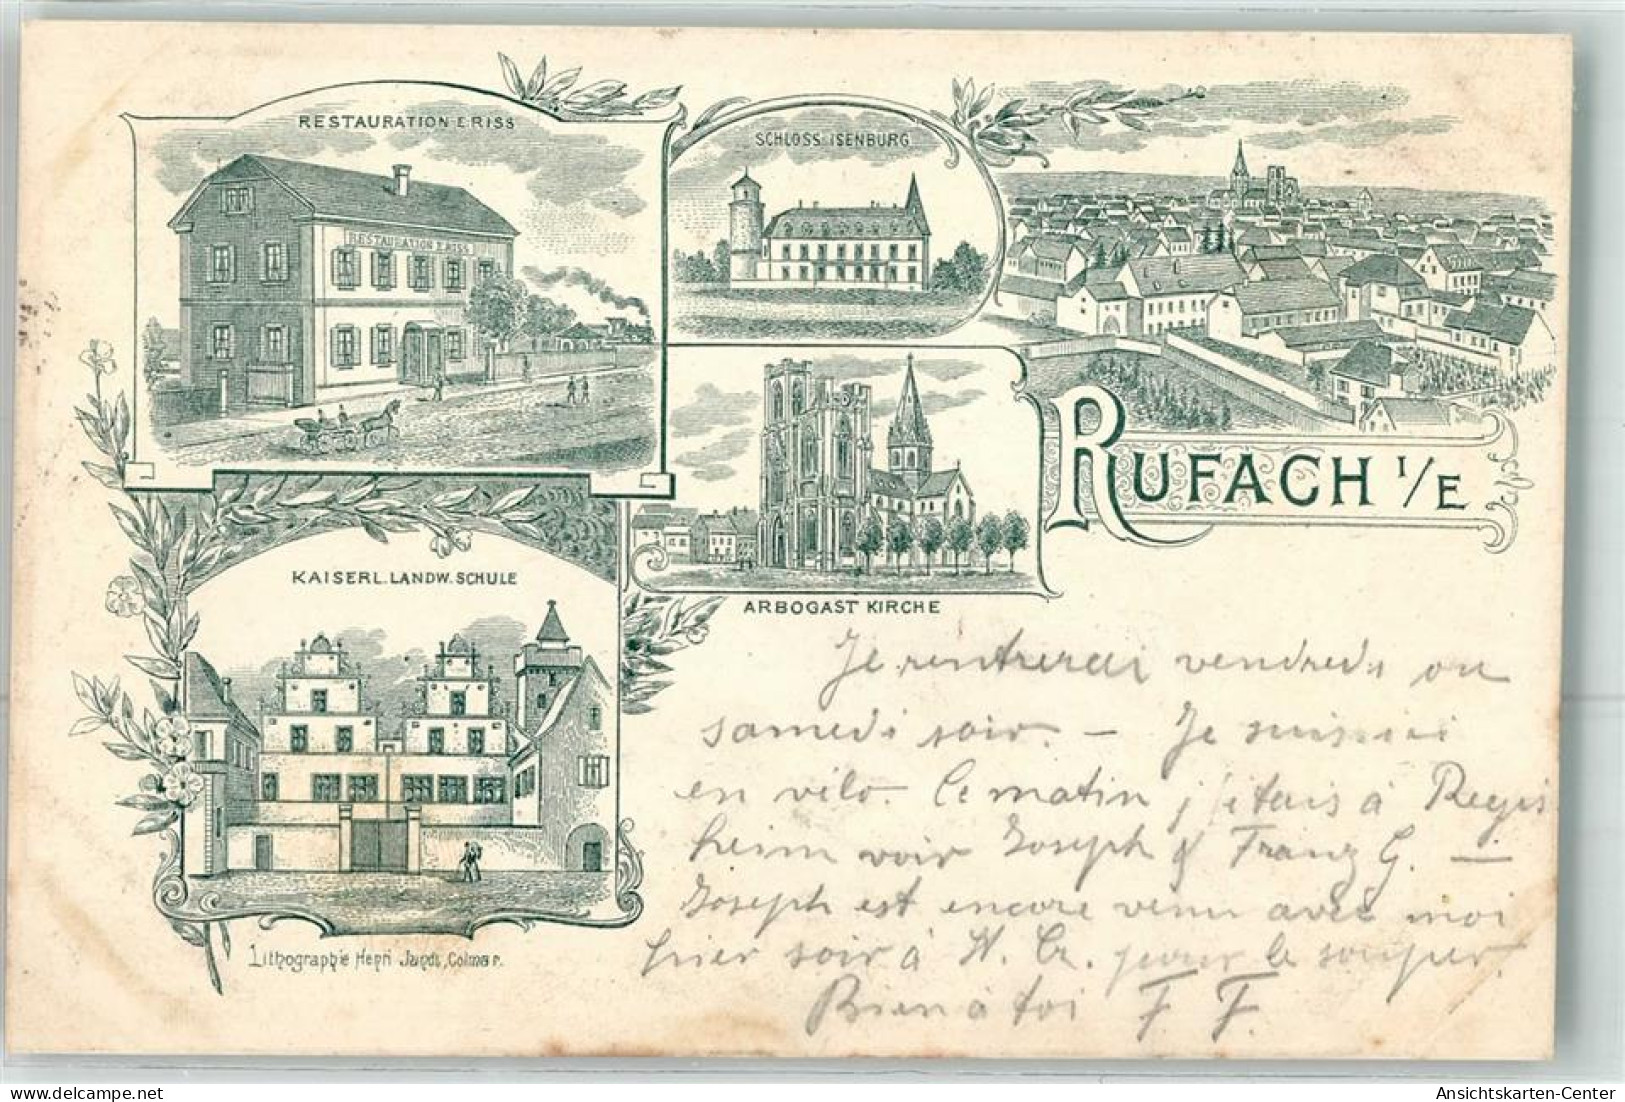 RESTAURATION E.RISS
RESTAURATION E.RISS
SCHLOSS ISENBURG
RUFACH I/E
ARBOGAST KIRCHE
KAISERL. LANDW. SCHULE
Lithographie Henri Jundt, Colmar.
Je rentrerai vendredi ou
samedi soir. – Je suis ici
en vélo. Ce matin j'étais à Regis
heim voir Joseph & Franz G. —
Joseph est encore venu avec moi
hier soir à H. Cr. pour le souper.
Bien à toi F F.
Ansichtskarten-Center